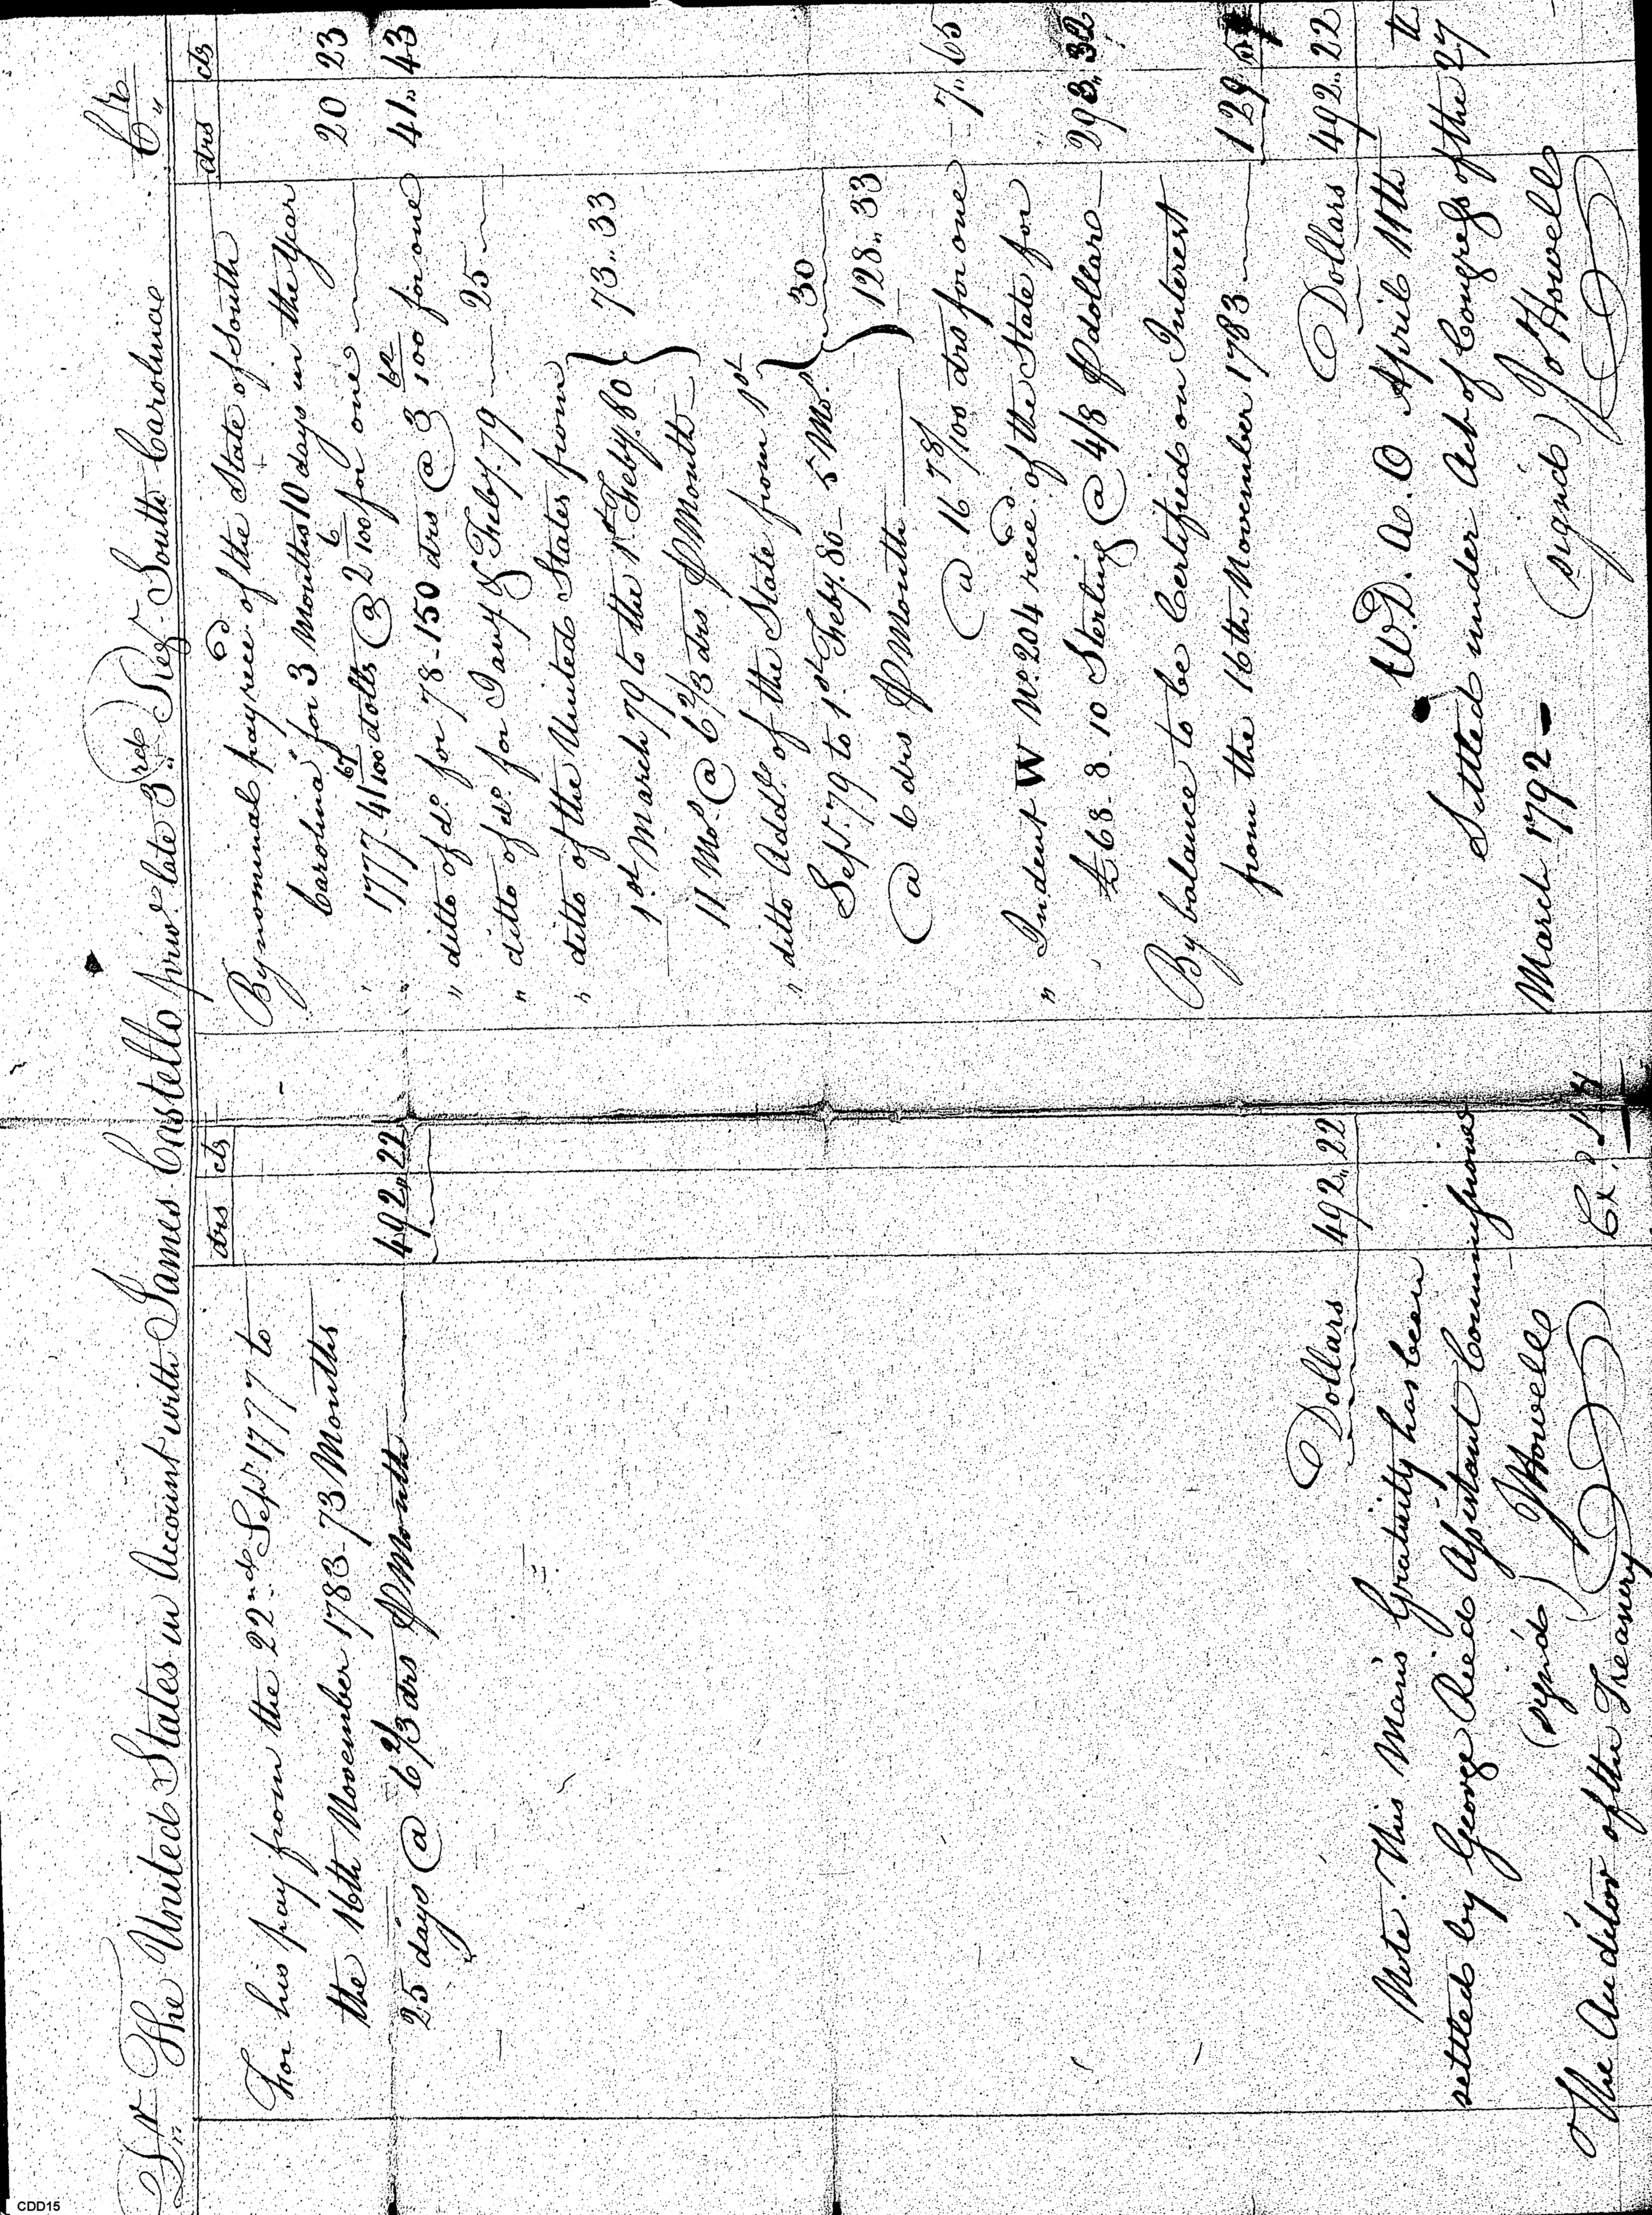 Dr. The United States in Account with James Costello priv.e late 3.rd Reg.t South Carolina Cr.
drs cts
For his pay from the 22.nd Sep.r 1777 to
the 16th November 1783 - 73 Months
25 days @ 6 2/3 drs P Month 492,,22
Dollars 492,,22
Note. This Man's Gratuity has been
settled by George Reid Assistant Commissioner
(sign'd) J Howell
The Auditor of the Treasury
drs cts
By nominal pay rece.d of the State of South
Carolina" for 3 Months 10 days in the Year
1777. 41 67/100 dolls @ 2 6/100 for one 20 23
" ditto of d.o for 78 - 150 drs @ 3 62/100 for one 41,,43
" ditto of d.o for Jan.y & Feby. 79 25
" ditto of the United States from
1.st March 79 to the 1.st Feby. 80
11 Mo.s @ 6 2/3 drs P Month } 73,,33
" ditto Add.l of the State from 1.st
Sep.r 79 to 1.st Feby. 80 - 5 Mo.s
@ 6 drs P Month } 30
128,,33
@ 16 78/100 drs for one 7,,65
" Indent W No. 204 rece.d of the State for
£68. 8. 10 Sterling @ 4/8 P dollar 293,,32
By balance to be Certified on Interest
from the 16th November 1783 129
Dollars 492,,22
W.D. A.O. April 11th
Settled under Act of Congress of the 27th
March 1792
(signd) Jo Howell